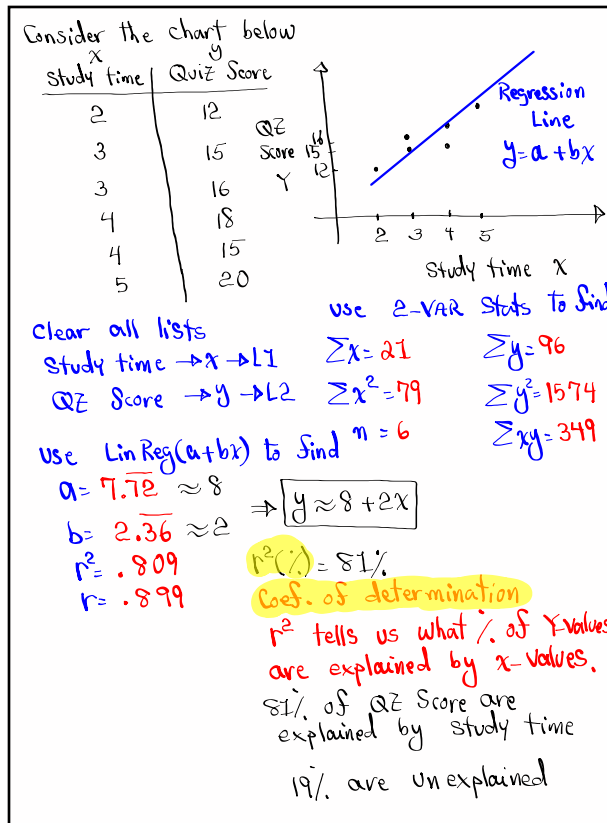 Consider the chart below
x y
Study time Quiz Score
2 12
3 15
3 16
4 18
4 15
5 20
QZ
Score
Y
16
15
12
2 3 4 5
Study time X
Regression
Line
y=a+bx
Clear all lists
Study time →x→L1
QZ Score →y→L2
use 2-VAR Stats to find
Σx=21 Σy=96
Σx²=79 Σy²=1574
n=6 Σxy=349
use LinReg(a+bx) to find
a=7.7̅2̅ ≈8
b=2.3̅6̅ ≈2
⇒ y≈8+2x
r²=.809
r=.899
r²(%)=81%
Coef. of determination
r² tells us what % of Y-values
are explained by x-values.
81% of QZ Score are
explained by study time
19% are unexplained